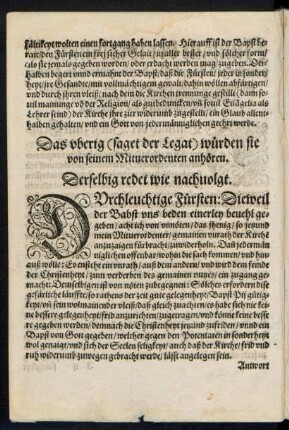 fältikeyt wolten einen fortgang haben lassen. Hierauff ist der Bapst be-
rait/den Fürsten ein frey sicher Gelait/ zu aller bester/ vnd solicher form/
als sie jemals gegeben worden/ oder erdacht werden mag/ zugeben. Der-
halben begert vnd ermahnt der Bapst/ daß die Fürsten/ jeder in sonder-
heyt/ jre Gesandte/ mit vollmächtigem gewalt/ dahin wöllen abfärtigen/
vnd durch jhren vleiß/ nach dem die Kirchen
halben gehalten/ vnd ein Gott von jedermänniglichen geehrt werde.
Das vberig (saget der Legat) würden sie
von seinem Mituerordenten anhören.
Derselbig redet wie nachuolgt.
DVrchleuchtige Fürsten: Dieweil
der Babst vns beden einerley beuelh ge-
geben/ acht ich von vnnöten/ das jhenig/ so jetzund
mein Mituerordenter/ gemainer vnrath der Kirche
anzuzaigen fürbracht/ zuwiderholn. Dañ jedermän
niglichen offenbar/ wohin die sach kommen/ vnd hin-
auß wölle: Es entsethe ein vnrath/ auß dem andern/ vnd wird dem feinde
der Christenheyt/ zum verderben des gemainen nutzes/ ein zugang ge-
macht: Demselbigen ist von nöten zubegegnen: Solches erfordern dise
gefärliche läuffte/ es rathens der zeit gute gelegenheyt: Bapst Pij gütig-
keyt/ vñ sein wolmainender vleiß/ daß gleych zuachten/ es habe sich nie kei-
ne bessere gelegenheyt/ frid anzurichten/ zugetragen/ vnd könne keine besse-
re gegeben werden/ demnach die Christenheyt jrgund zufriden/ vnnd ein
Bapst von Gott gegeben/ welcher gegen den Potentaten in sonderheyt
wol genaigt/ vnd sich der Seelen seligkeyt/ auch daß der Kirche/ frid vnd
ruh widerumb zuwegen gebracht werde/ läßt angelegen sein.
Antwort